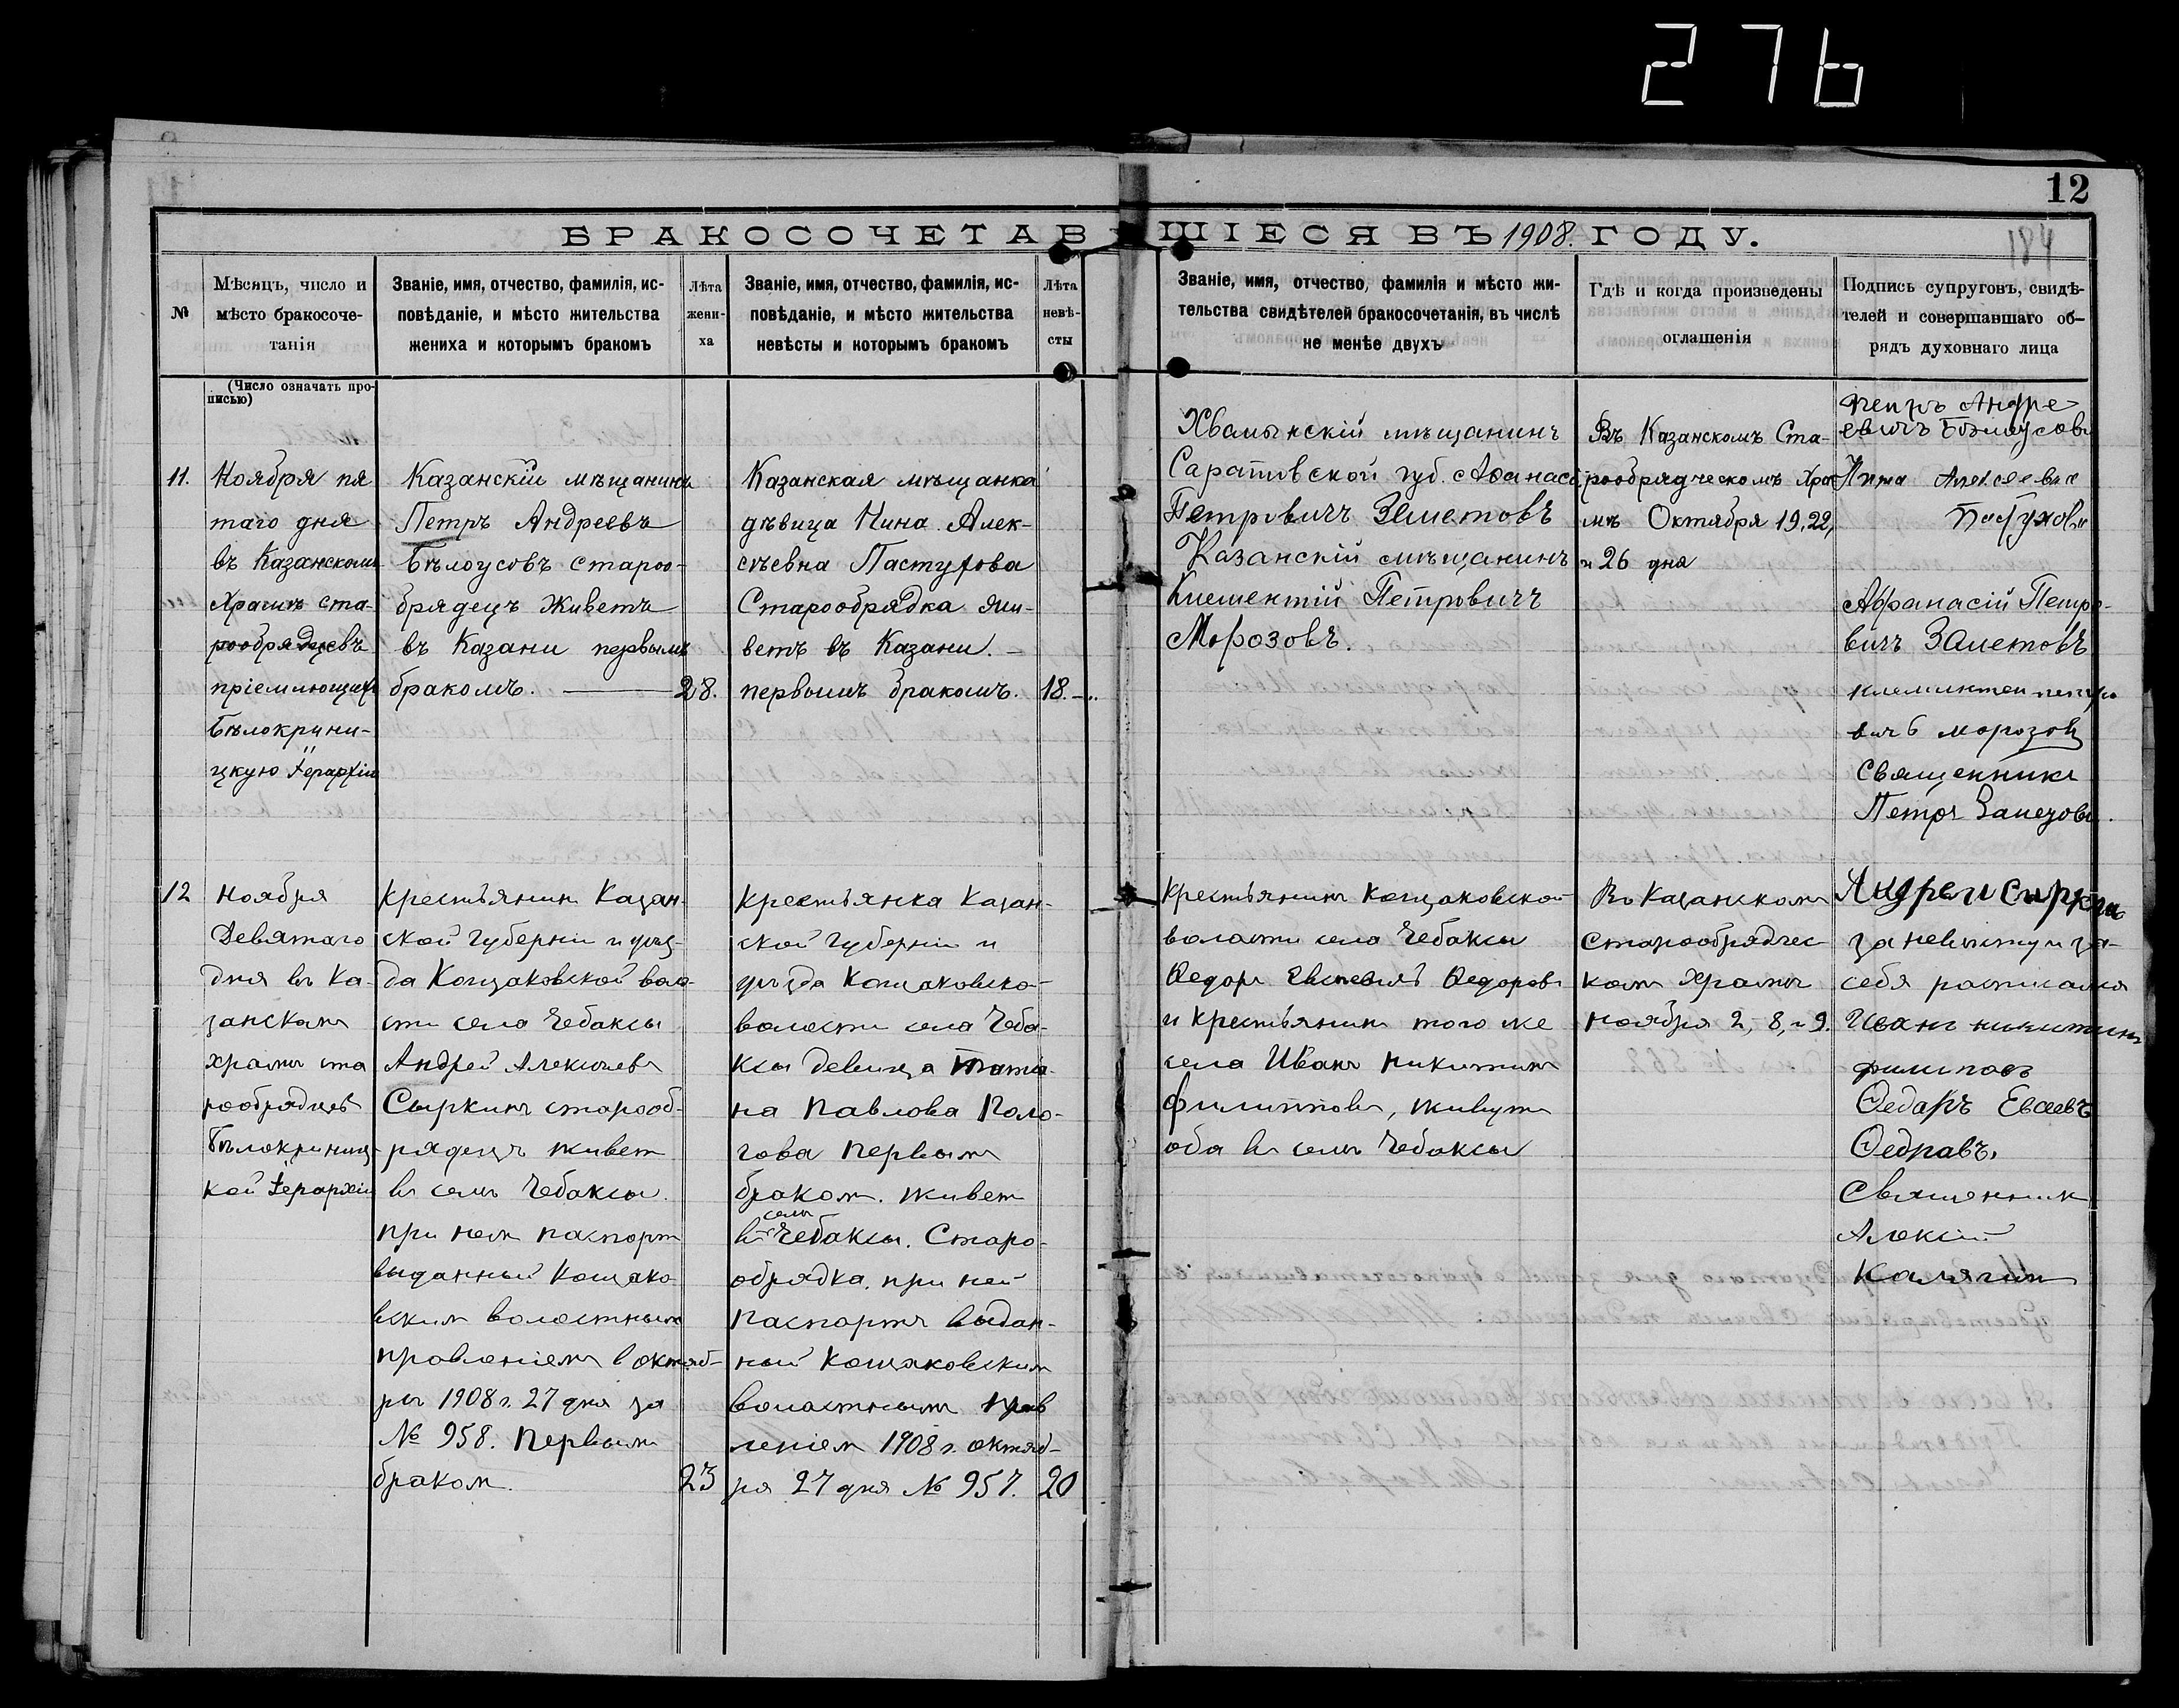 276
12
БРАКОСОЧЕТАВШІЕСЯ ВЪ 1908. ГОДУ.
184
№
Мѣсяцъ, число и
мѣсто бракосоче-
танія
Званіе, имя, отчество, фамилія, ис-
повѣданіе, и мѣсто жительства
жениха и которымъ бракомъ
Лѣта
жени-
ха
Званіе, имя, отчество, фамилія, ис-
повѣданіе, и мѣсто жительства
невѣсты и которымъ бракомъ
Лѣта
невѣ-
сты
Званіе, имя, отчество, фамилія и мѣсто жи-
тельства свидѣтелей бракосочетанія, въ числѣ
не менѣе двухъ
Гдѣ и когда произведены
оглашенія
Подпись супруговъ, свидѣ-
телей и совершавшаго об-
рядъ духовнаго лица
(Число означать про-
писью)
11.
Ноября пя
таго дня
въ Казанскомъ
Храмѣ ста-
рообрядцевъ
пріемлющихъ
Бѣлокрини-
цкую Іерархію
Казанскій мѣщанинъ
Петръ Андреевъ
Бѣлоусовъ староо-
брядецъ Живетъ
въ Казани первымъ
бракомъ.
28.
Казанская мѣщанка
дѣвица Нина Алек-
сѣевна Пастухова
Старообрядка жи-
ветъ въ Казани. —
первымъ бракомъ.
18.
Хвалынскій мѣщанинъ
Саратовской губ. Аѳанасій
Петровичъ Заметовъ
Казанскій мѣщанинъ
Климентій Петровичъ
Морозовъ.
Въ Казанскомъ Ста-
рообрядческомъ Хра
мѣ Октября 19, 22,
и 26 дня
Петръ Андре
евичъ Бѣлоусовъ
Нина Алексеевна
Пастухова
Афанасій Петро-
вичъ Заметовъ
Клементеи петро
вичъ морозов
Священникъ
Петръ Заметовъ.
12
Ноября
Девятаго
дня въ Ка-
занскомъ
храмѣ ста
рообрядцевъ
Бѣлокриниц-
кой Іерархіи
Крестьянинъ Казан-
ской губерніи и уѣз-
да Кощаковской воло-
сти села Чебаксы
Андрей Алексѣевъ
Сыркинъ старооб-
рядецъ живет
въ селѣ Чебаксы.
при нем паспорт
выданный Кощако
вским волостным
правленіемъ в октяб-
рѣ 1908 г. 27 дня за
№ 958. Первым
браком.
23
Крестьянка Казан-
ской губерніи и
уѣзда Кощаковской
волости села Чеба-
ксы девица Татiа-
на Павлова Поло-
гова Первымъ
браком. живет
в селѣ Чебаксы. Старо-
обрядка. при ней
Паспортъ выдан-
ный Кощаковским
волостнымъ прав
леніем 1908 г. октяб-
ря 27 дня № 957.
20
Крестьянинъ Кощаковской
волости села Чебаксы
Ѳедоръ Евсевіевъ Ѳедоровъ
и Крестьянинъ того же
села Иванъ Никитинъ
Филипповъ, живутъ
оба въ селѣ Чебаксы
Въ Казанскомъ
Старообрядчес
комъ Храмѣ
ноября 2, 8, и 9.
Андреи Сиркин
за невѣсту и за-
себя расписался
Иванъ никитинъ
филиповъ
Ѳедаръ Евсевъ
Ѳедравъ.
Священник
Алексій
Калягин